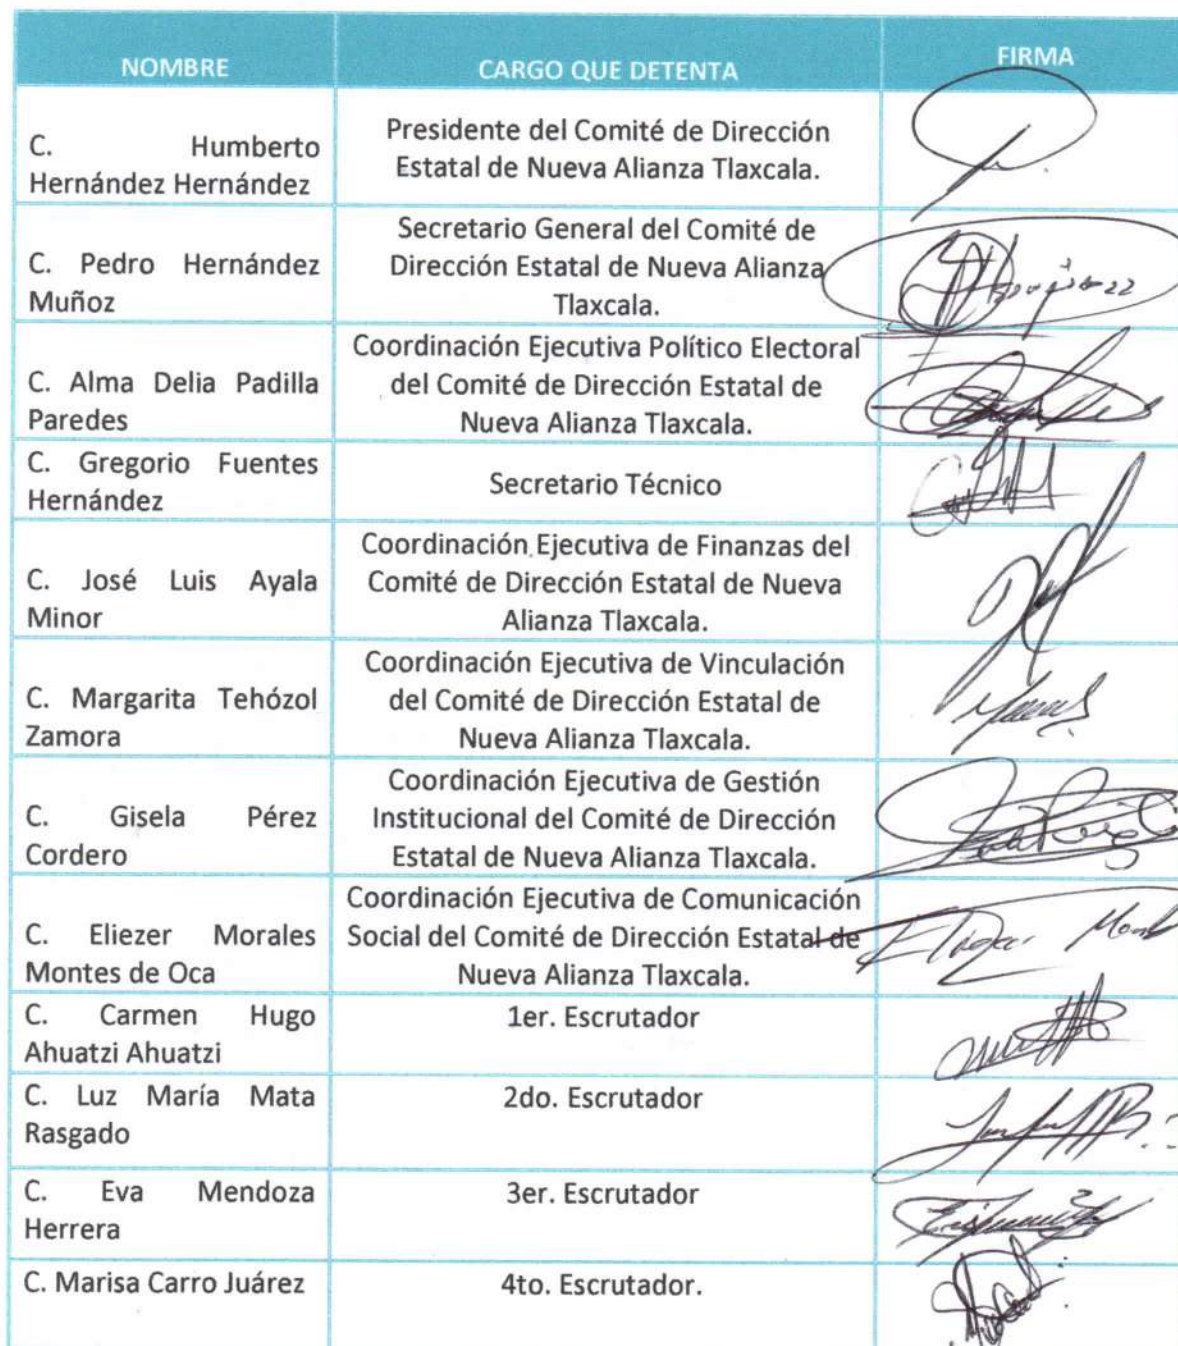 NOMBRE
CARGO QUE DETENTA
FIRMA
C. Humberto
Hernández Hernández
Presidente del Comité de Dirección
Estatal de Nueva Alianza Tlaxcala.
C. Pedro Hernández
Muñoz
Secretario General del Comité de
Dirección Estatal de Nueva Alianza
Tlaxcala.
C. Alma Delia Padilla
Paredes
Coordinación Ejecutiva Político Electoral
del Comité de Dirección Estatal de
Nueva Alianza Tlaxcala.
C. Gregorio Fuentes
Hernández
Secretario Técnico
C. José Luis Ayala
Minor
Coordinación Ejecutiva de Finanzas del
Comité de Dirección Estatal de Nueva
Alianza Tlaxcala.
C. Margarita Tehózol
Zamora
Coordinación Ejecutiva de Vinculación
del Comité de Dirección Estatal de
Nueva Alianza Tlaxcala.
C. Gisela Pérez
Cordero
Coordinación Ejecutiva de Gestión
Institucional del Comité de Dirección
Estatal de Nueva Alianza Tlaxcala.
C. Eliezer Morales
Montes de Oca
Coordinación Ejecutiva de Comunicación
Social del Comité de Dirección Estatal de
Nueva Alianza Tlaxcala.
C. Carmen Hugo
Ahuatzi Ahuatzi
1er. Escrutador
C. Luz María Mata
Rasgado
2do. Escrutador
C. Eva Mendoza
Herrera
3er. Escrutador
C. Marisa Carro Juárez
4to. Escrutador.